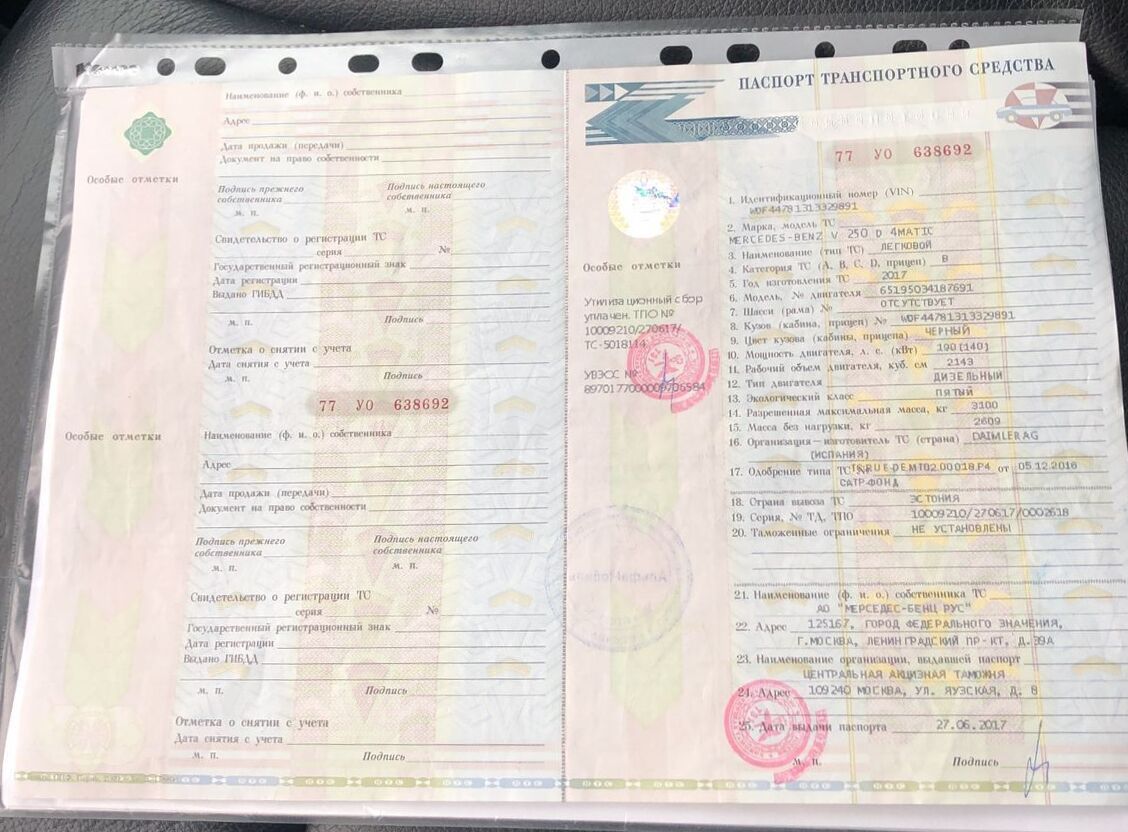 Наименование (ф. и. о.) собственника
Адрес
Дата продажи (передачи)
Документ на право собственности
Особые отметки
Подпись прежнего собственника
Подпись настоящего собственника
м. п.
м. п.
Свидетельство о регистрации ТС
серия №
Государственный регистрационный знак
Дата регистрации
Выдано ГИБДД
м. п. Подпись
Отметка о снятии с учета
Дата снятия с учета
м. п. Подпись
77 УО 638692
Особые отметки
Наименование (ф. и. о.) собственника
Адрес
Дата продажи (передачи)
Документ на право собственности
Подпись прежнего собственника
Подпись настоящего собственника
м. п.
м. п.
Свидетельство о регистрации ТС
серия №
Государственный регистрационный знак
Дата регистрации
Выдано ГИБДД
м. п. Подпись
Отметка о снятии с учета
Дата снятия с учета
м. п. Подпись
ПАСПОРТ ТРАНСПОРТНОГО СРЕДСТВА
77 УО 638692
Особые отметки
Утилизационный сбор
уплачен. ТПО №
10009210/270617/
ТС-5018114
УВЭОС №
1. Идентификационный номер (VIN)
WDF44781313329891
2. Марка, модель ТС
MERCEDES-BENZ V 250 D 4MATIC
3. Наименование (тип ТС) ЛЕГКОВОЙ
4. Категория ТС (А, В, С, D, прицеп) B
5. Год изготовления ТС 2017
6. Модель, № двигателя 65195034187691
7. Шасси (рама) № ОТСУТСТВУЕТ
8. Кузов (кабина, прицеп) № WDF44781313329891
9. Цвет кузова (кабины, прицепа) ЧЕРНЫЙ
10. Мощность двигателя, л. с. (кВт) 190 (140)
11. Рабочий объем двигателя, куб. см 2143
12. Тип двигателя ДИЗЕЛЬНЫЙ
13. Экологический класс ПЯТЫЙ
14. Разрешенная максимальная масса, кг 3100
15. Масса без нагрузки, кг 2609
16. Организация—изготовитель ТС (страна) DAIMLER AG
(ИСПАНИЯ)
17. Одобрение типа ТС № ТС RU E-DE.МТ02.00018.Р4 от 05.12.2016
САТР-ФОНД
18. Страна вывоза ТС ЭСТОНИЯ
19. Серия, № ТД, ТПО 10009210/270617/0002618
20. Таможенные ограничения НЕ УСТАНОВЛЕНЫ
21. Наименование (ф. и. о.) собственника ТС
АО "МЕРСЕДЕС-БЕНЦ РУС"
22. Адрес 125167, ГОРОД ФЕДЕРАЛЬНОГО ЗНАЧЕНИЯ,
Г.МОСКВА, ЛЕНИНГРАДСКИЙ ПР-КТ, Д.39А
23. Наименование организации, выдавшей паспорт
ЦЕНТРАЛЬНАЯ АКЦИЗНАЯ ТАМОЖНЯ
24. Адрес 109240 МОСКВА, УЛ. ЯУЗСКАЯ, Д. 8
25. Дата выдачи паспорта 27.06.2017
м. п. Подпись